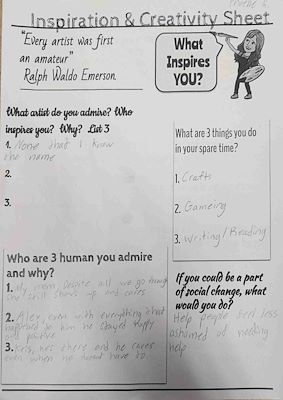 Phoebe R.
Inspiration & Creativity Sheet
"Every artist was first
an amateur"
Ralph Waldo Emerson.
What
Inspires
YOU?
What artist do you admire? Who
inspires you? Why? List 3
1. None that I know
the name
2.
3.
What are 3 things you do
in your spare time?
1. Crafts
2. Gameing
3. Writing/Reading
Who are 3 human you admire
and why?
1. My mom, Despite all we go through
she still shows up and cares
2. Alex, even with everything that
happened to him he stayed happy
and positive
3. Kris, hes there and he cares
even when he doesnt have to.
If you could be a part
of social change, what
would you do?
Help people feel less
ashamed of needing
help